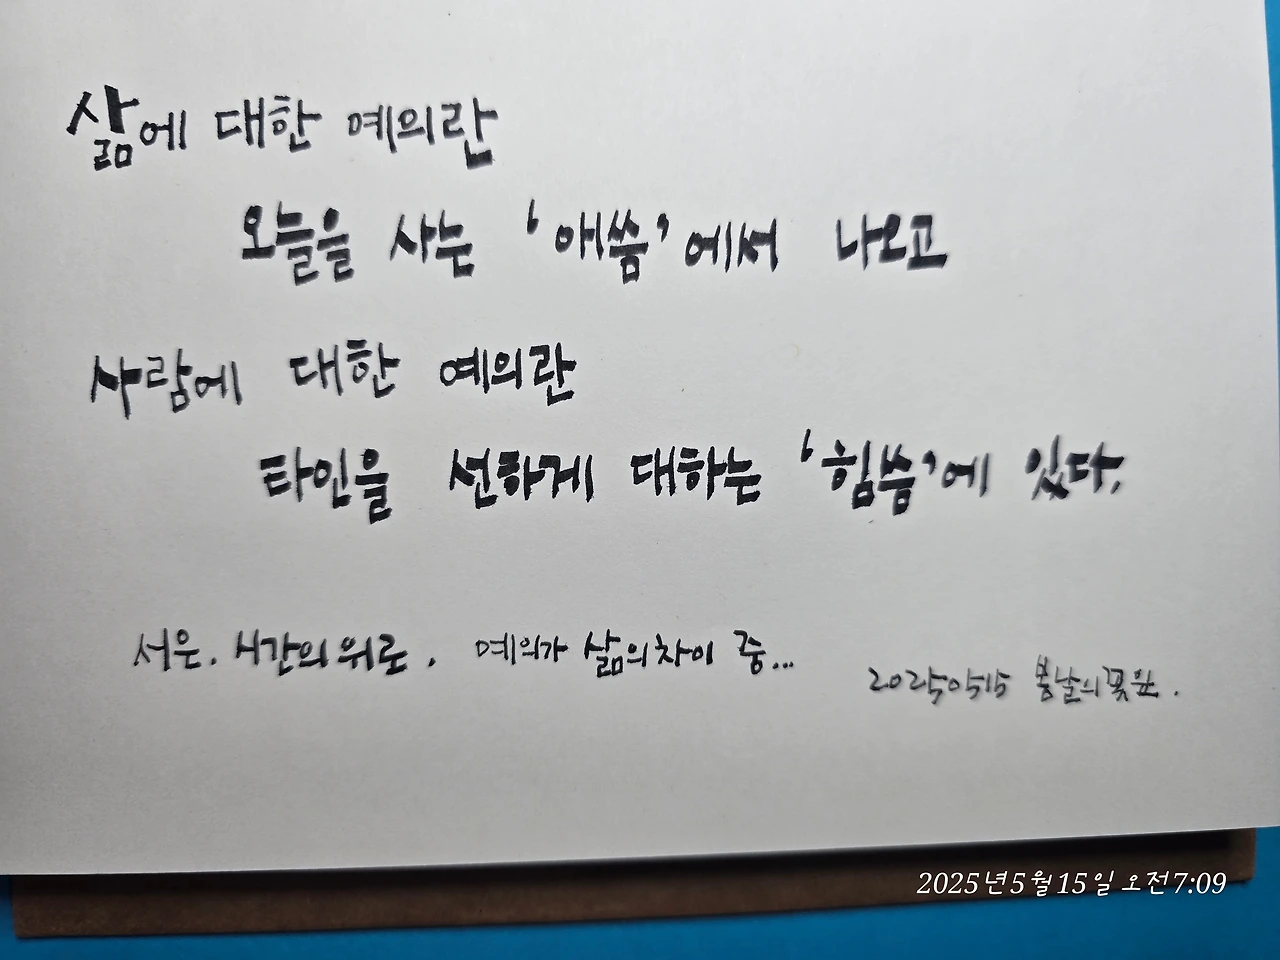 삶에 대한 예의란
오늘을 사는 '애씀'에서 나오고
사람에 대한 예의란
타인을 선하게 대하는 '힘씀'에 있다.
서은. 시간의 위로. 예의가 삶의 차이 중...
20250515 봄날의꽃잎.
2025년5월15일 오전7:09